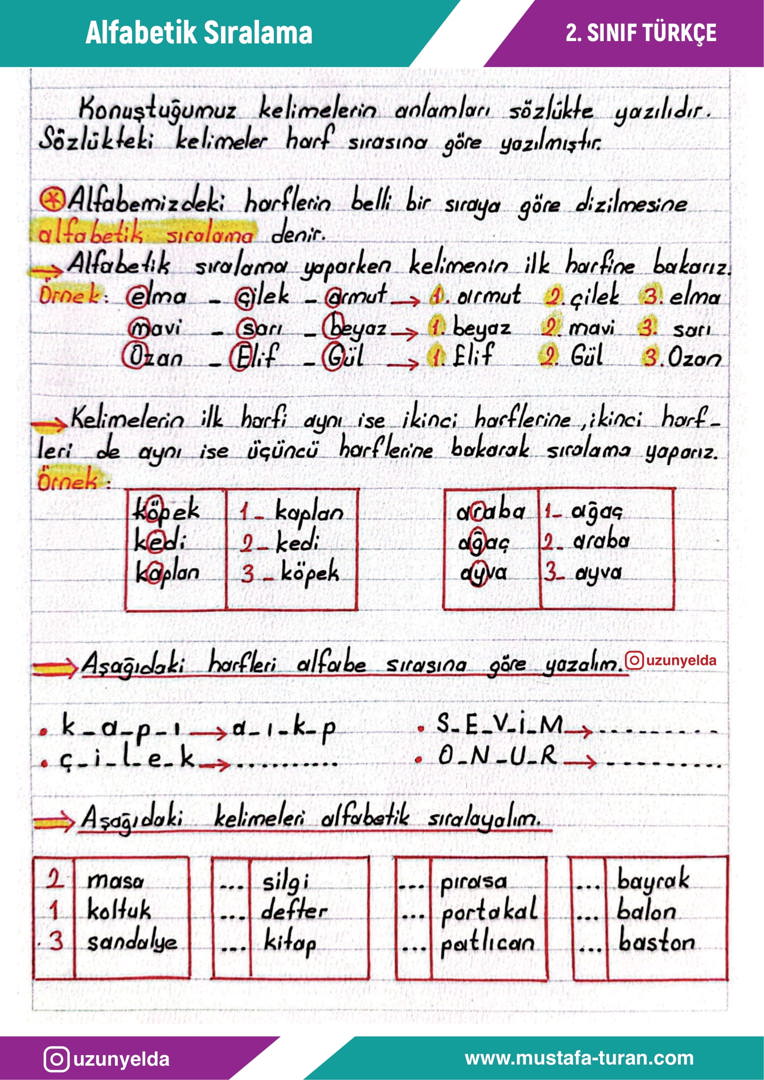 Alfabetik Sıralama
2. SINIF TÜRKÇE
Konuştuğumuz kelimelerin anlamları sözlükte yazılıdır.
Sözlükteki kelimeler harf sırasına göre yazılmıştır.
Alfabemizdeki harflerin belli bir sıraya göre dizilmesine
alfabetik sıralama denir.
→ Alfabetik sıralama yaparken kelimenin ilk harfine bakarız.
Örnek: elma - çilek - armut → 1. armut 2. çilek 3. elma
mavi - sarı - beyaz → 1. beyaz 2. mavi 3. sarı
Ozan - Elif - Gül → 1. Elif 2. Gül 3. Ozan
→ Kelimelerin ilk harfi aynı ise ikinci harflerine, ikinci harf-
leri de aynı ise üçüncü harflerine bakarak sıralama yaparız.
Örnek:
köpek 1- kaplan
kedi 2- kedi
kaplan 3- köpek
araba 1- ağaç
ağaç 2- araba
ayva 3- ayva
→ Aşağıdaki harfleri alfabe sırasına göre yazalım.
uzunyelda
• k-a-p-ı → a-ı-k-p
• S-E-V-İ-M → ---------
• ç-i-l-e-k → ..........
• O-N-U-R → ---------
→ Aşağıdaki kelimeleri alfabetik sıralayalım.
2 masa
1 koltuk
3 sandalye
... silgi
... defter
... kitap
... pırasa
... portakal
... patlıcan
... bayrak
... balon
... baston
uzunyelda
www.mustafa-turan.com